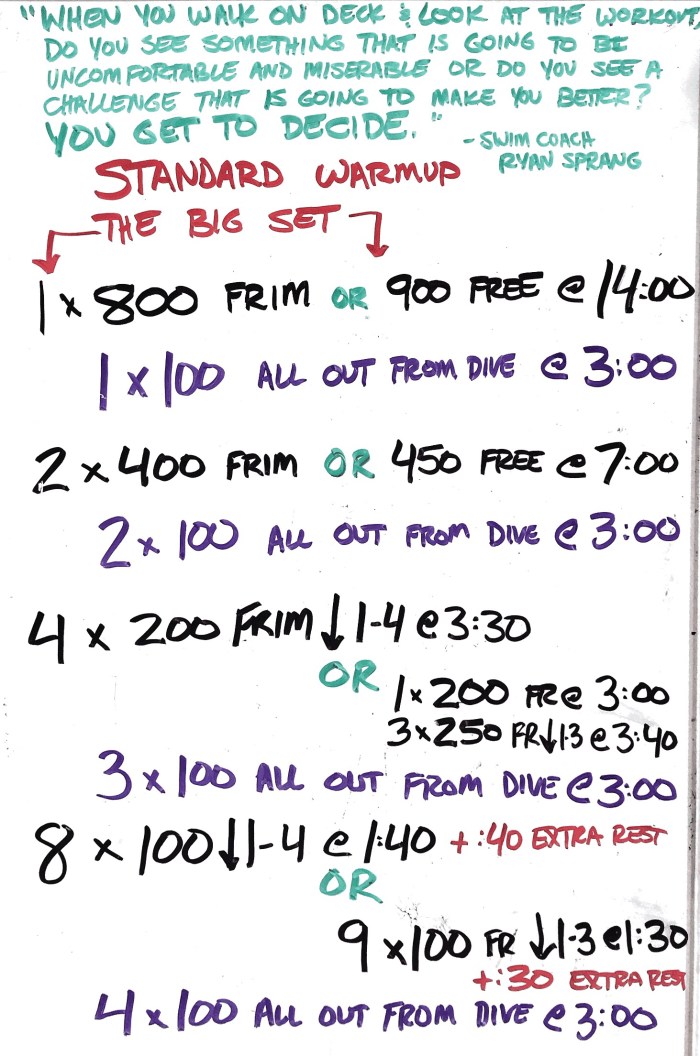 "WHEN YOU WALK ON DECK & LOOK AT THE WORKOUT,
DO YOU SEE SOMETHING THAT IS GOING TO BE
UNCOMFORTABLE AND MISERABLE OR DO YOU SEE A
CHALLENGE THAT IS GOING TO MAKE YOU BETTER?
YOU GET TO DECIDE."
- SWIM COACH
RYAN SPRANG
STANDARD WARMUP
THE BIG SET
1 x 800 FRIM OR 900 FREE @ 14:00
1 x 100 ALL OUT FROM DIVE @ 3:00
2 x 400 FRIM OR 450 FREE @ 7:00
2 x 100 ALL OUT FROM DIVE @ 3:00
4 x 200 FRIM ↓ 1-4 @ 3:30
OR
1 x 200 FR @ 3:00
3 x 250 FR ↓ 1-3 @ 3:40
3 x 100 ALL OUT FROM DIVE @ 3:00
8 x 100 ↓ 1-4 @ 1:40 + :40 EXTRA REST
OR
9 x 100 FR ↓ 1-3 @ 1:30
+ :30 EXTRA REST
4 x 100 ALL OUT FROM DIVE @ 3:00